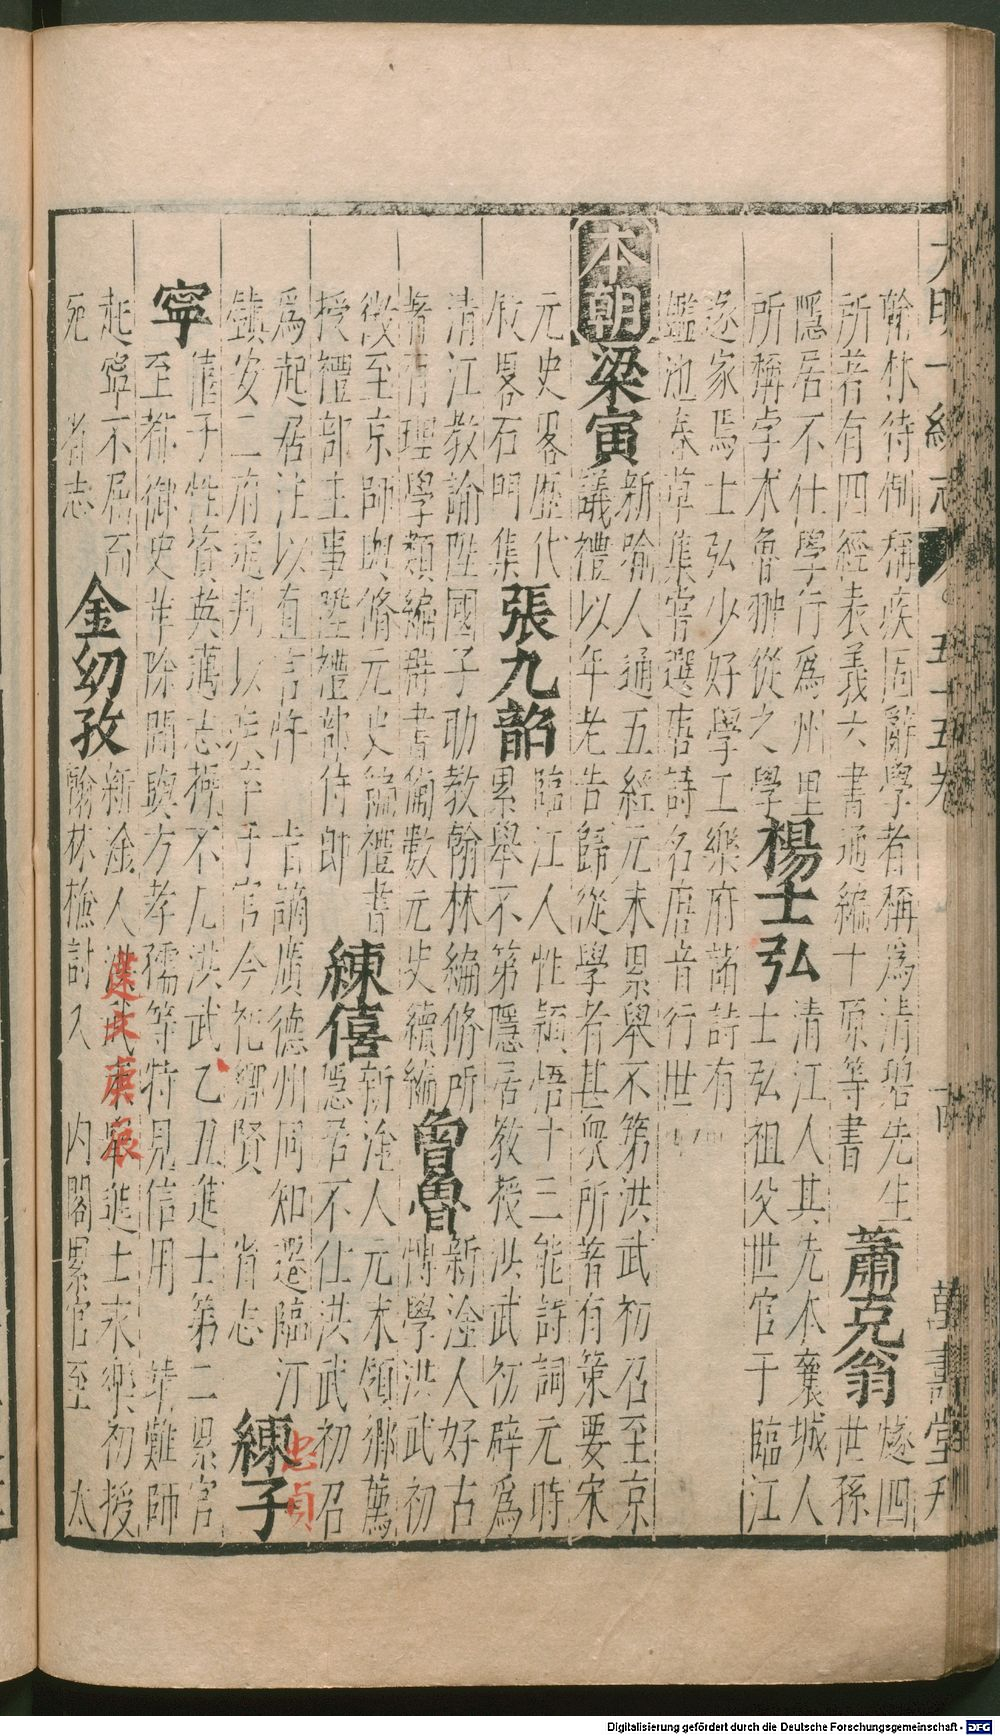 大明一統志 五十五卷 十 萬壽堂刋
翰林待制稱疾固辭學者稱爲淸碧先生蕭克翁燧四
所著有四經表義六書通編十原等書世孫
隱居不仕學行爲州里楊士弘淸江人其先本襄城人
所稱孛术魯翀從之學士弘祖父世官于臨江
遂家焉士弘少好學工樂府諸詩有
鑑池春草集嘗選唐詩名唐音行世
本朝梁寅新喻人通五經元末累舉不第洪武初召至京
議禮以年老告歸從學者甚衆所著有策要宋
元史畧歴代張九韶臨江人性穎悟十三能詩詞元時
敘畧石門集累舉不第隱居敎授洪武初辟爲
淸江敎諭陞國子助敎翰林編脩所曾魯新淦人好古
著有理學類編群書備數元史續編愽學洪武初
徴至京師與脩元史編禮書練僖新淦人元末領鄕薦
授禮部主事陞禮部侍郎隱居不仕洪武初召
爲起居注以直言忤 旨謫廣德州同知遷臨汀練子
鎮安二府通判以疾卒于官今祀鄕賢 省志
忠貞
寧僖子性資英邁志操不凡洪武乙丑進士第二累官
至都御史革除間與方孝孺等特見信用 靖難師
起寧不屈而金幼孜新淦人洪武末舉進士永樂初授
建文庚辰
死 省志翰林檢討入 内閣累官至 太
Digitalisierung gefördert durch die Deutsche Forschungsgemeinschaft - DFG